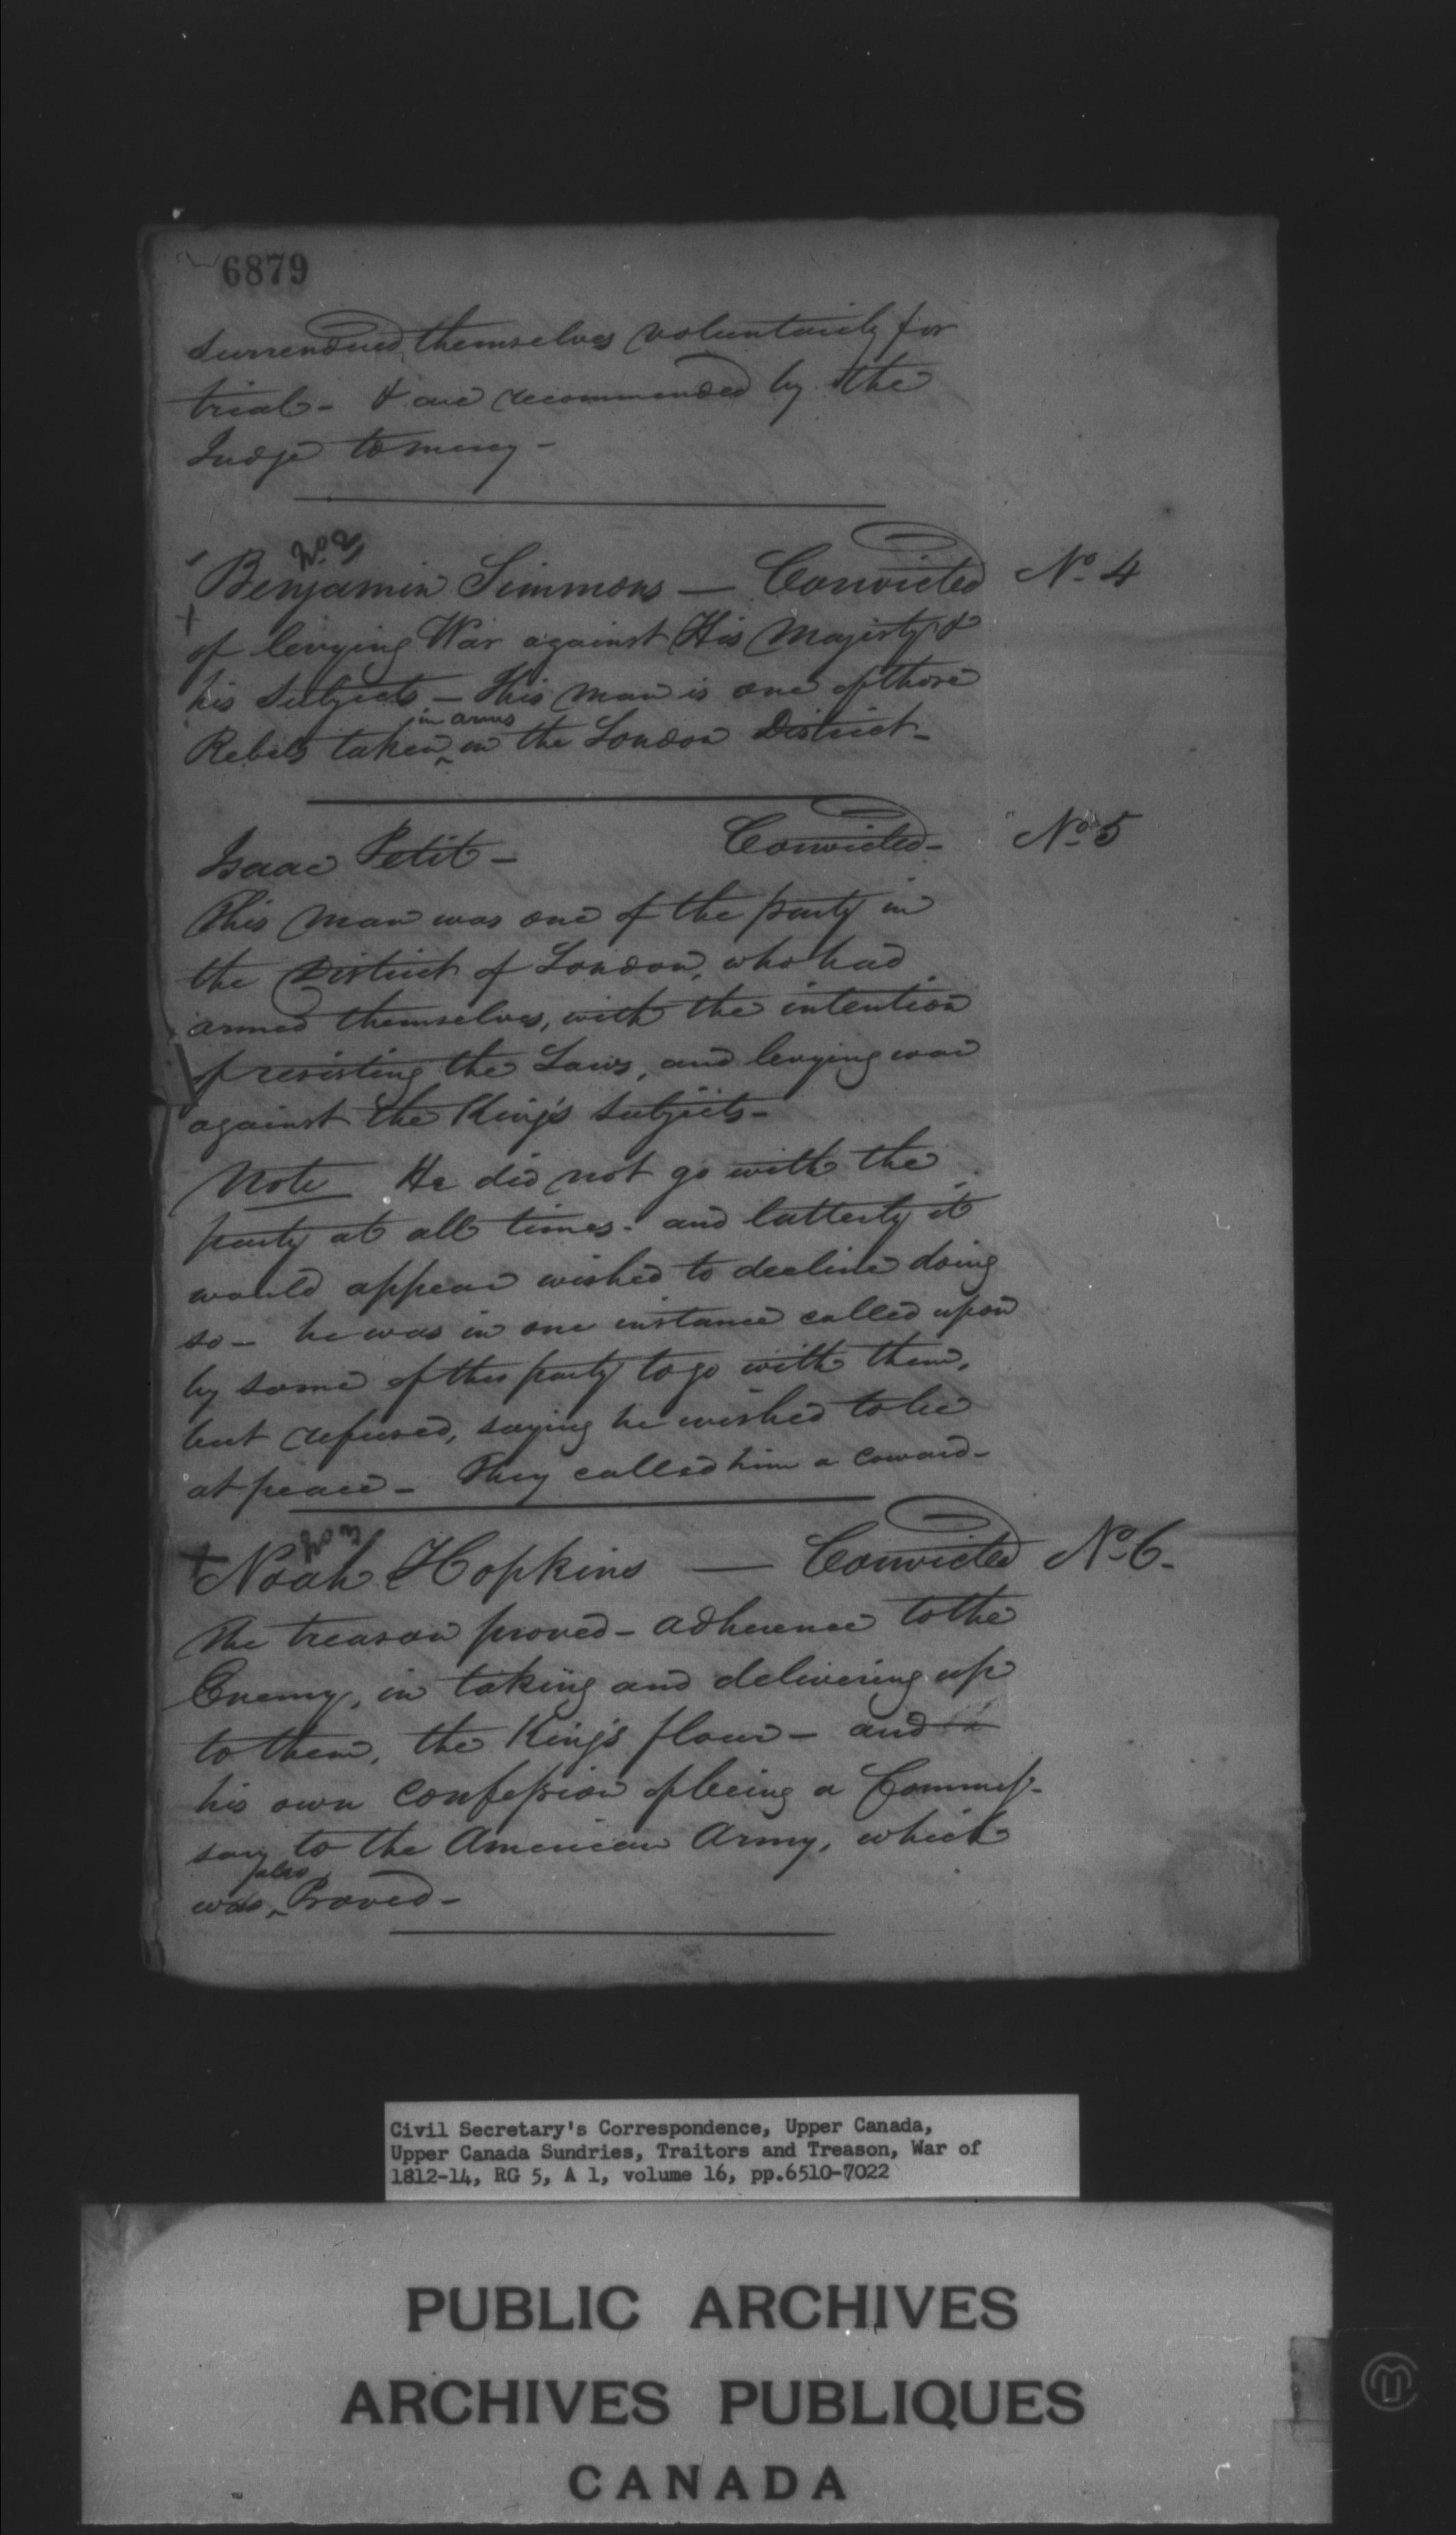 6879
surrendered themselves voluntarily for
trial - & are recommended by the
Judge to mercy -
No 2
Benjamin Simmons — Convicted No 4
of levying War against His Majesty &
his Subjects — This man is one of those
in arms
Rebels taken ^ in the London District -
Isaac Petit - Convicted - No 5
This man was one of the party in
the District of London, who had
armed themselves, with the intention
of resisting the Laws, and levying war
against the King's subjects -
Note He did not go with the
party at all times. and latterly it
would appear wished to decline doing
so - he was in one instance called upon
by some of the party to go with them,
but refused, saying he wished to be
at peace - They called him a coward -
No 3
+ Noah Hopkins — Convicted No 6.
The treason proved - adherence to the
Enemy, in taking and delivering up
to them, the King's flour - and
his own confession of being a Commis-
sary to the American Army, which
also
was ^ Proved -
Civil Secretary's Correspondence, Upper Canada,
Upper Canada Sundries, Traitors and Treason, War of
1812-14, RG 5, A 1, volume 16, pp.6510-7022
PUBLIC ARCHIVES
ARCHIVES PUBLIQUES
CANADA